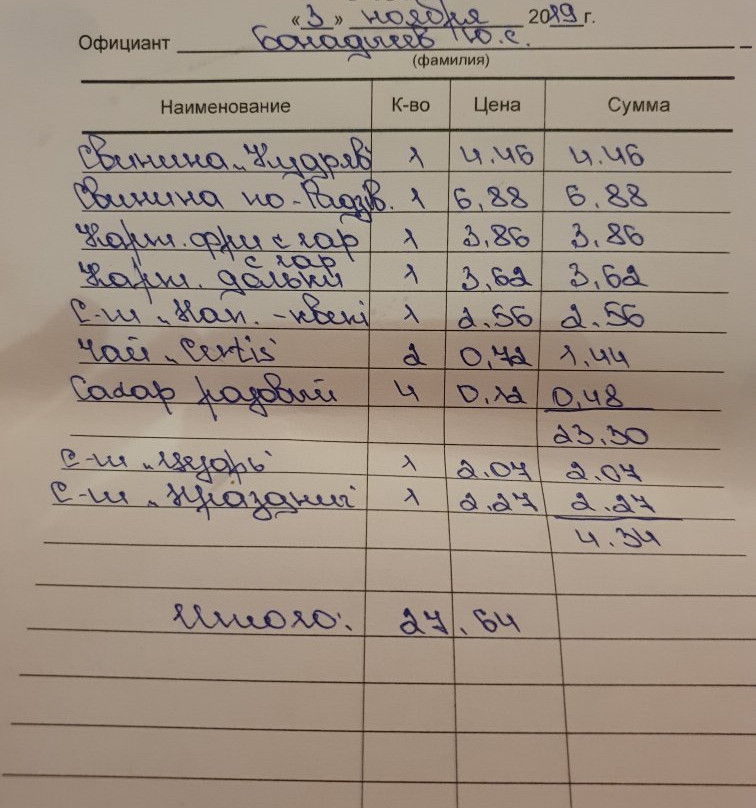 « 3 » ноября 2019 г.
Официант Ю.С.
(фамилия)
Наименование К-во Цена Сумма
Свинина „Кудряв" 1 4.46 4.46
Свинина по-Радзв. 1 6,88 6,88
Карт. фри с гар 1 3,86 3,86
Карт. дольки с гар 1 3,62 3,62
С-ш „Нап. -квені 1 2.56 2.56
Чай „Curtis" 2 0,72 1.44
Сахар 4 0,12 0,48
23.30
С-ш „Цезарь" 1 2.07 2.07
С-ш 1 2.27 2.27
4.34
Итого: 27.64